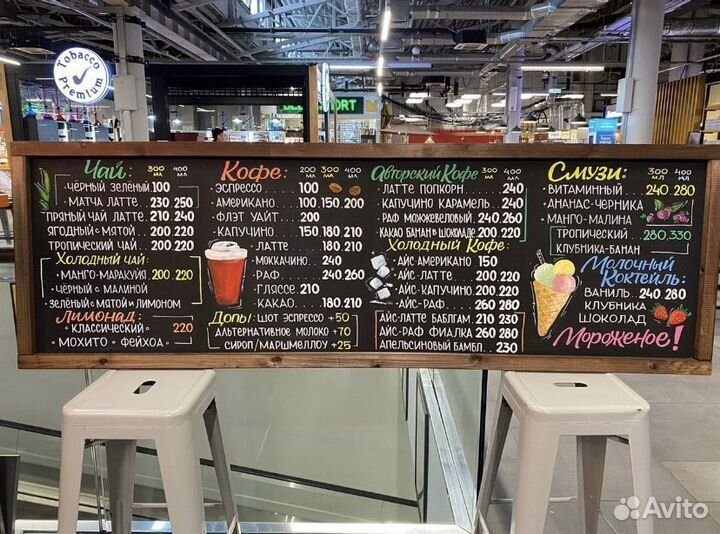 Tobacco
Premium
SPORT
Чай: 300 мл 400 мл
· чёрный зелёный 100
· матча латте. 230 250
пряный чай латте. 210 240
ягодный с мятой . 200 220
тропический чай 200 220
Холодный чай:
· манго-маракуйя 200. 220
· чёрный с малиной
зелёный с мятой и лимоном
Лимонад:
· классический · 220
· мохито · фейхоа ·
Кофе: 200 мл 300 мл 400 мл
· эспрессо .... 100
· американо ... 100, 150, 200
· флэт уайт .. 200
· капучино ... 150 180 210
· латте .... 180 210
· моккачино . 240
· раф ..... 240 260
· гляссе ... 210
· какао ... 180. 210
Допы: шот эспрессо +50
альтернативное молоко +70
сироп/маршмеллоу +25
Авторский Кофе 300 мл 400 мл
· латте попкорн .. 240
· капучино карамель . 240
· раф можжевеловый. 240. 260
какао банан в шоколаде 220
Холодный Кофе:
· айс американо 150
· айс-латте .. 200. 220
· айс-капучино. 200 220
· айс-раф .... 260 280
айс-латте баблгам. 210 230
айс-раф фиалка 260 280
апельсиновый бамбл .. 230
Смузи: 300 мл 400 мл
· витаминный .. 240. 280
· ананас-черника
· манго-малина
тропический . 280, 330
клубника-банан
Молочный
Коктейль:
ваниль.. 240. 280
клубника
шоколад
Мороженое!
Avito